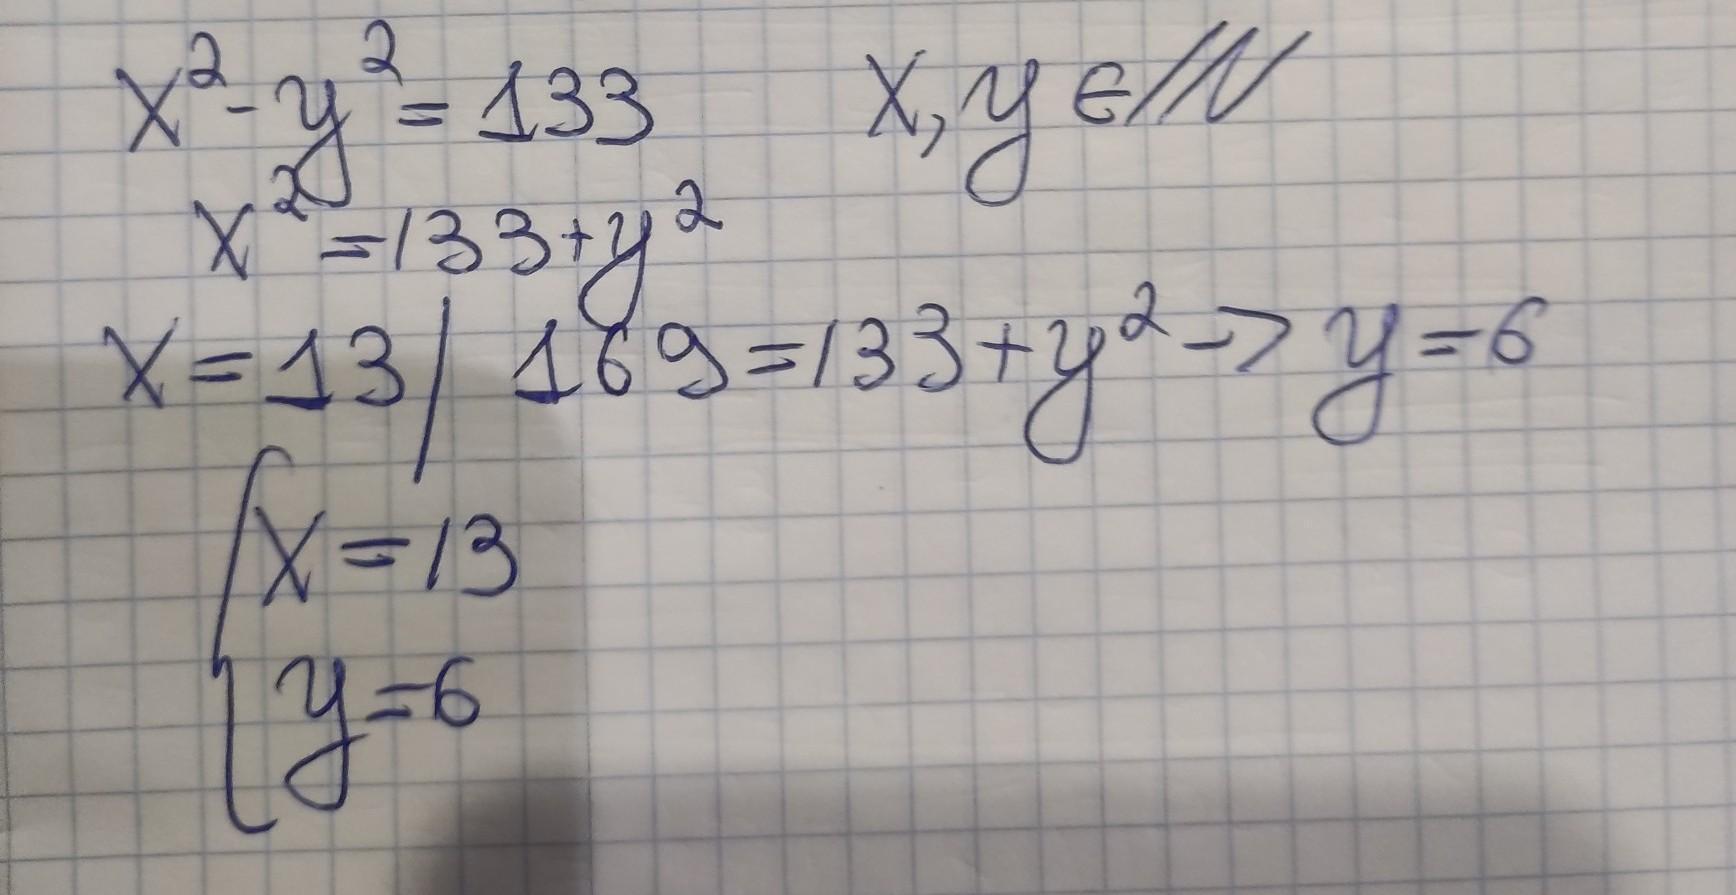 x² - y² = 133 x, y ∈ ℕ
x² = 133 + y²
x = 13 / 169 = 133 + y² -> y = 6
{ x = 13
y = 6